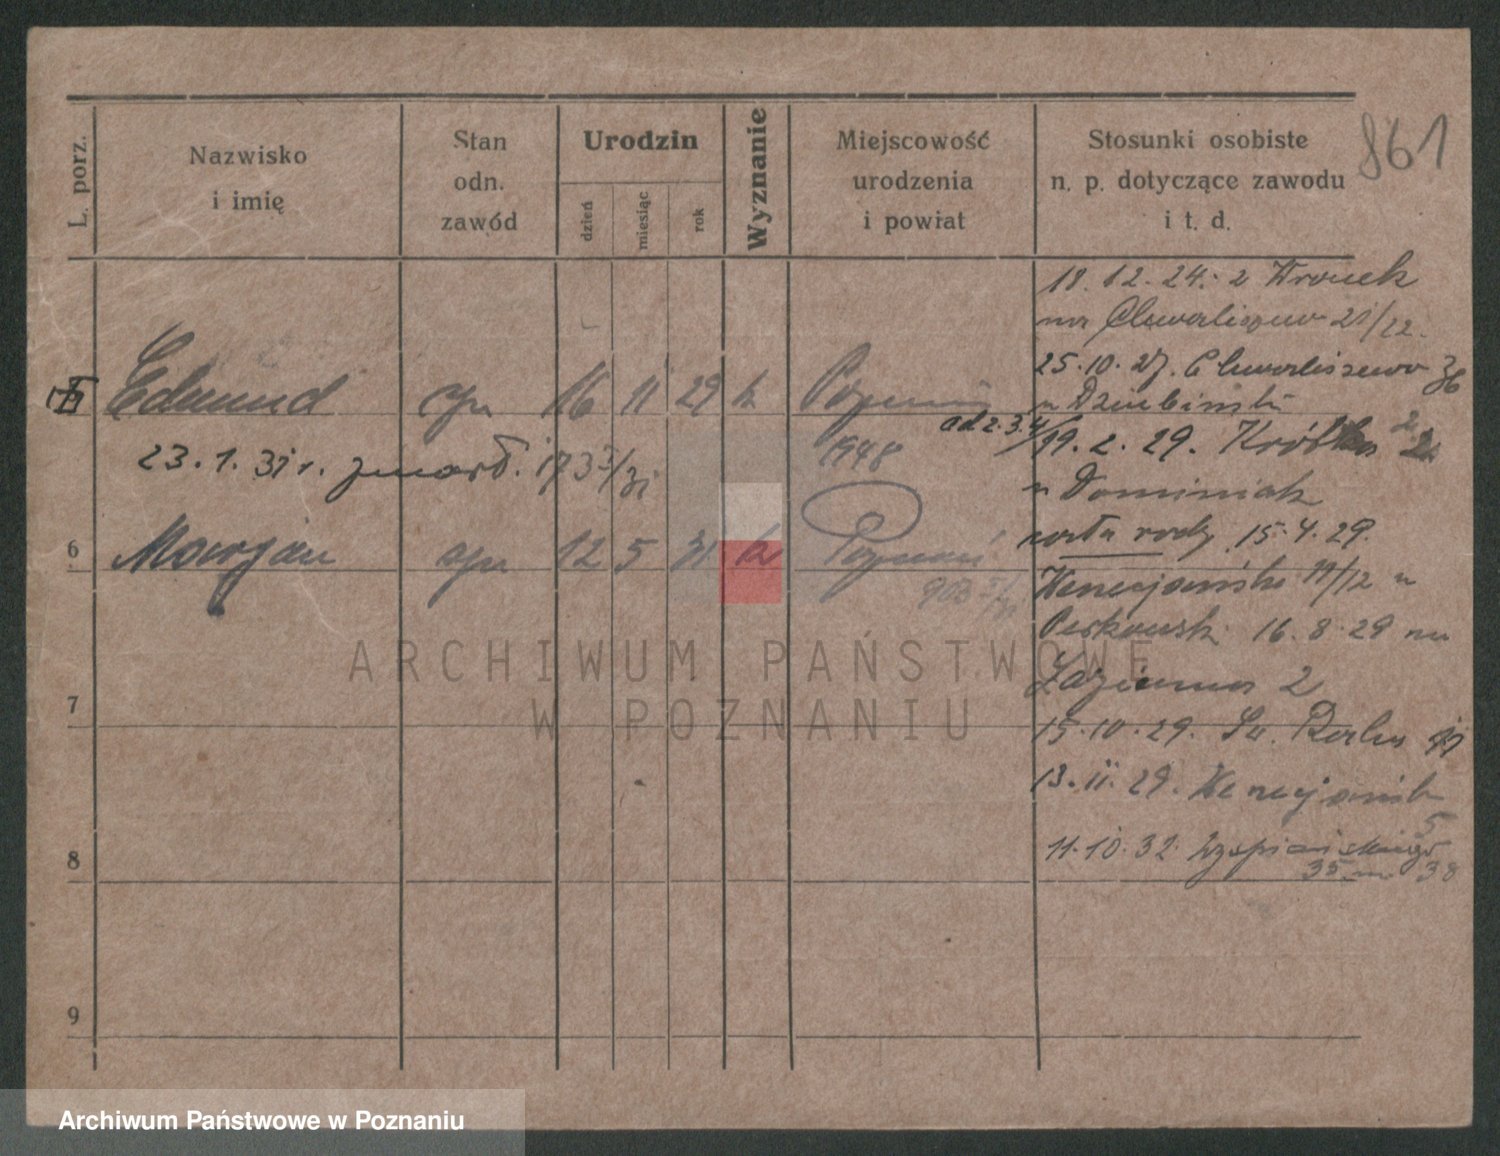 861
L. porz.
Nazwisko i imię
Stan odn. zawód
Urodzin
dzień
miesiąc
rok
Wyznanie
Miejscowość urodzenia i powiat
Stosunki osobiste n. p. dotyczące zawodu i t. d.
18. 12. 24. z Wronek
na Chwaliszewo 21/22.
25. 10. 27. Chwaliszewo 36
Edmund syn 16 11 29 k Poznań
u
ad 2.3.4/19. 2. 29.
1948
23. 1. 31 r. zmarł. 173 I/31
u Dominiak
15. 4. 29.
6 Marjan syn 12 5 31 k Poznań
Wenecjańska 11/12 u
903
16. 8. 29 na
ARCHIWUM PAŃSTWOWE
W POZNANIU
2
7
15. 10. 29. Św.
13. 11. 29. Wenecjańska
5
8
11. 10. 32.
35 m 38
9
Archiwum Państwowe w Poznaniu